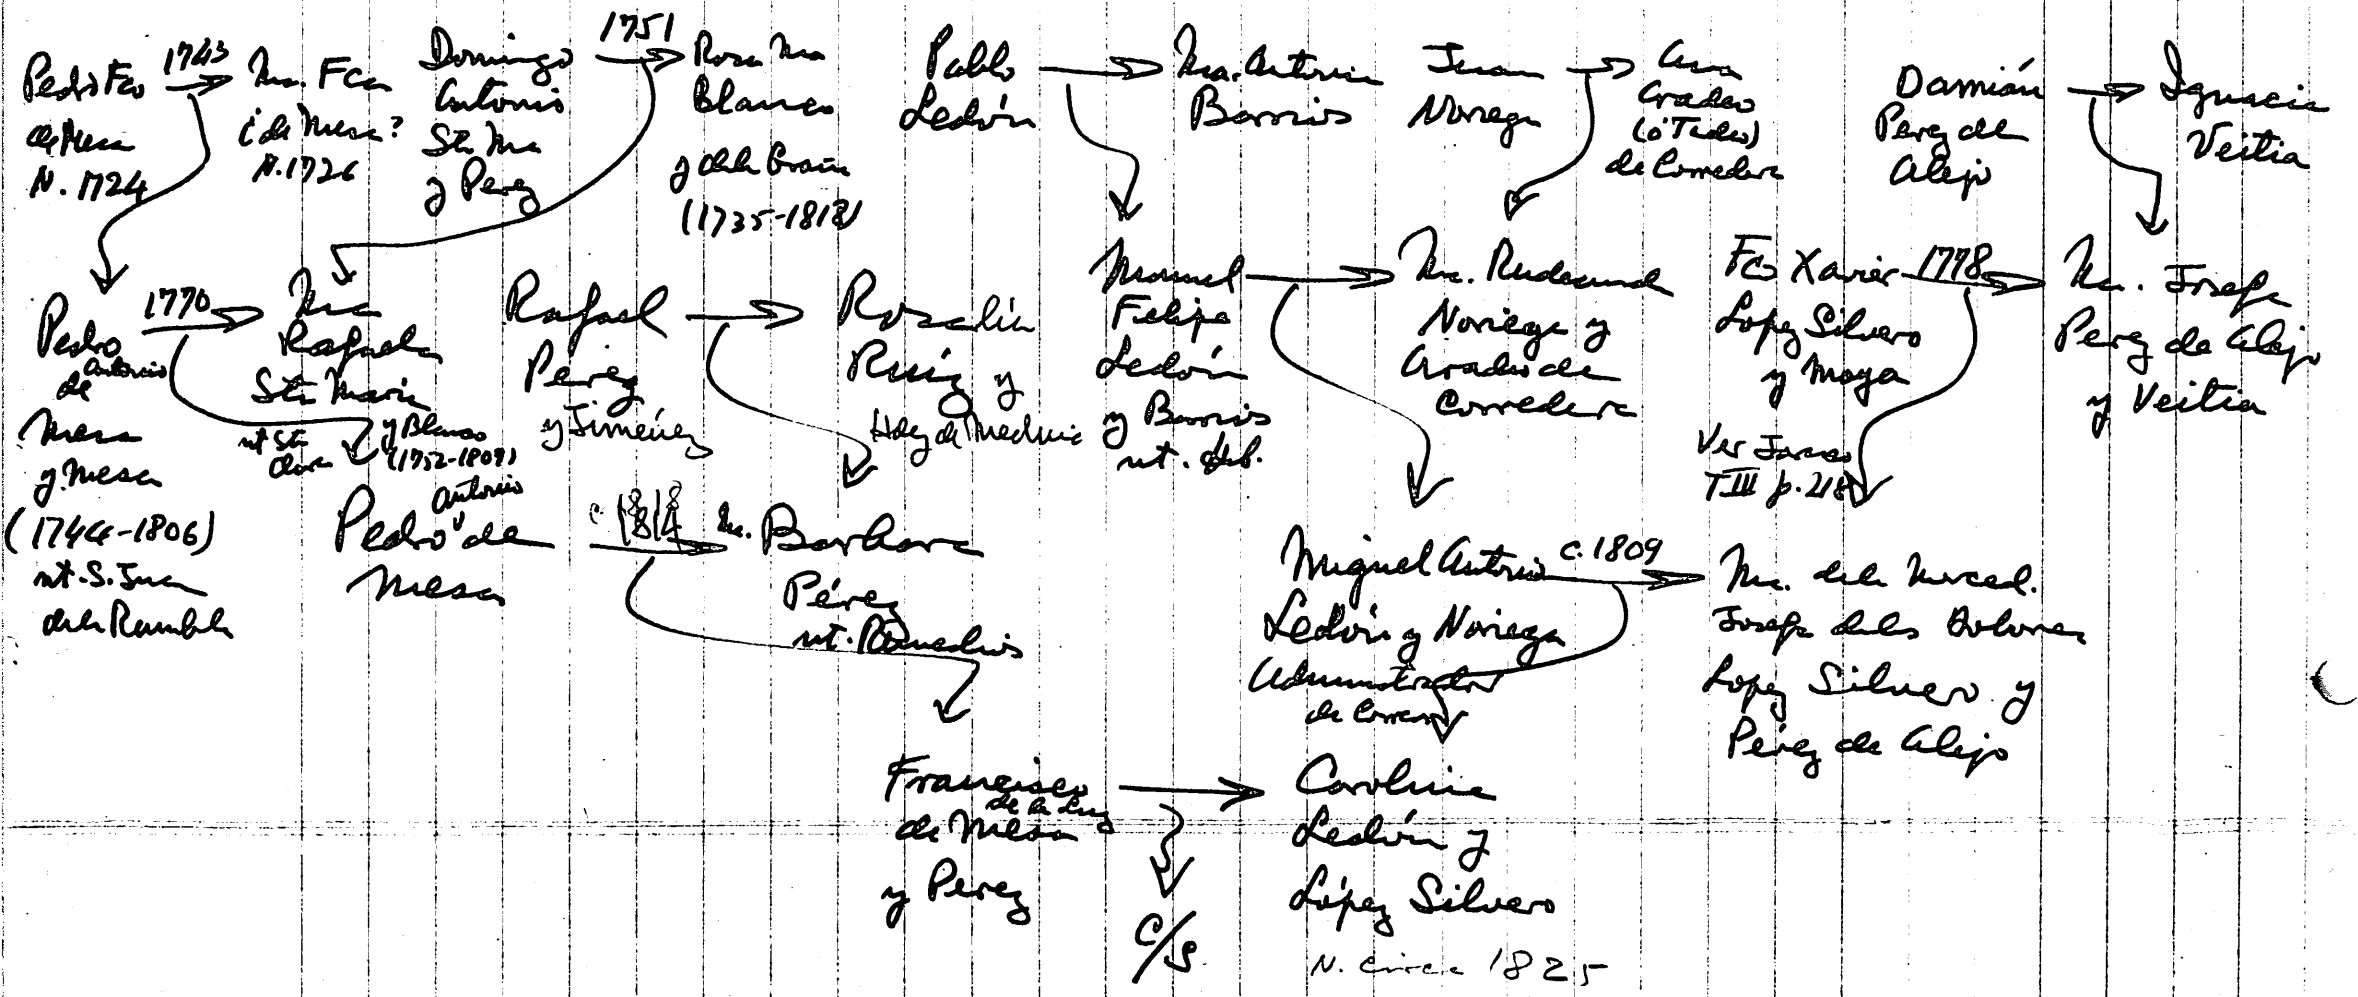 Pedro Fco
de Mesa
N. 1724
1743
Ma. Fca
¿de Mesa?
N. 1726
Domingo
Antonio
Sta Ma
y Perez
1751
Rosa Ma
Blanco
y de la
(1735-1818)
Pablo
Ledón
Ma. Antonia
Barrios
Juan
Noriega
Ana
Gradeo
(ó Tadeo)
de Corredera
Damián
Perez de
Alejo
Ignacia
Veitia
Pedro
Antonio
de
Mesa
y Mesa
(1744-1806)
nt. S. Juan
de la Rambla
1770
Ma
Rafaela
Sta Maria
y Blanco
(1752-1809)
nt Sta
Clara
Rafael
Perez
y Jiménez
Rosalía
Ruíz y
Hdez de Medina
Manuel
Felipe
Ledón
y Barrios
nt. Hab.
Ma. Rudecinda
Noriega y
Gradeo de
Corredera
Fco Xavier
Lopez Silvero
y Moya
1778
Ma. Josefa
Perez de Alejo
y Veitia
Ver Jaruco
T III p. 218
Antonio
Pedro de
Mesa
c. 1814
Ma. Barbara
Pérez
nt. Remedios
Miguel Antonio
Ledón y Noriega
Administrador
de Correos
c. 1809
Ma. de la Merced
Josefa de los Dolores
Lopez Silvero y
Pérez de Alejo
Francisco
de la Luz
de Mesa
y Perez
C/S
Carolina
Ledón y
López Silvero
N. circa 1825